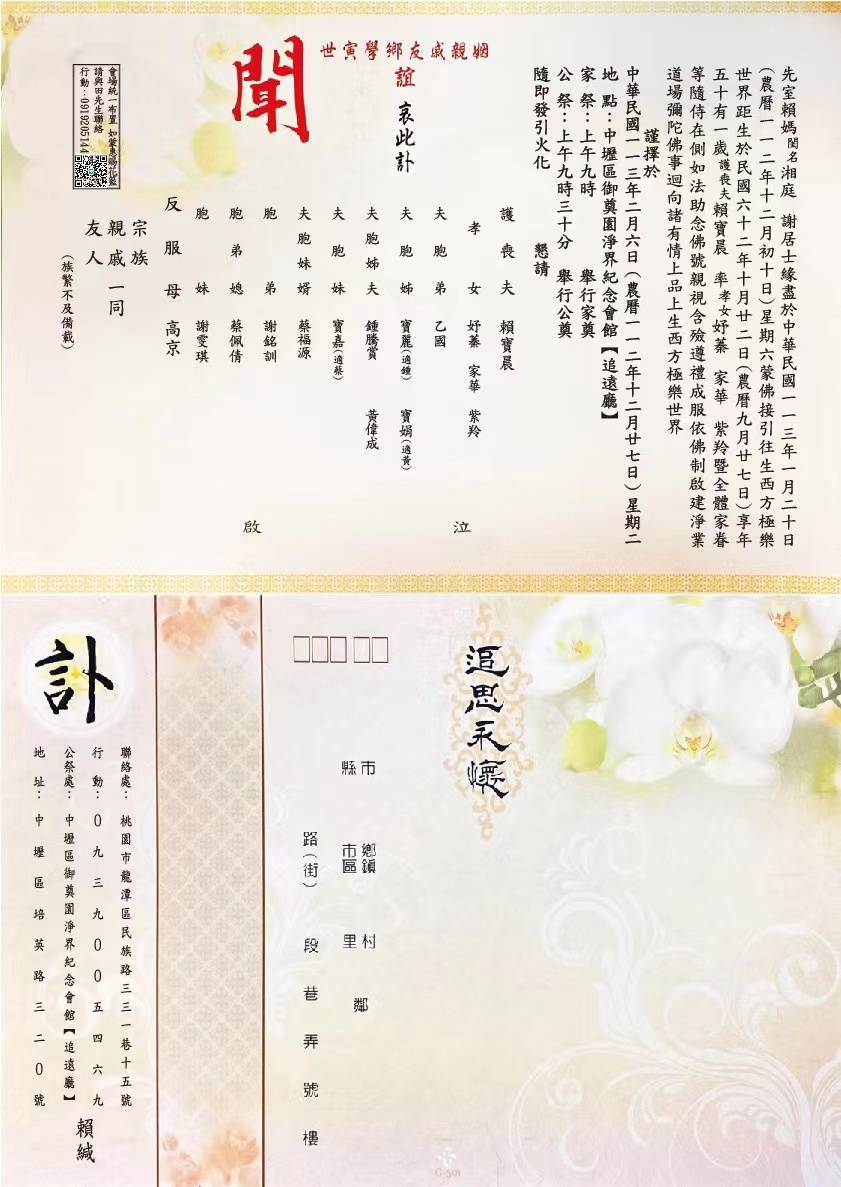 先室賴媽閨名湘庭 謝居士緣盡於中華民國一一三年一月二十日
(農曆一一二年十二月初十日)星期六蒙佛接引往生西方極樂
世界距生於民國六十二年十月廿二日(農曆九月廿七日)享年
五十有一歲護喪夫賴寶晨 率孝女妤蓁 家華 紫羚暨全體家眷
等隨侍在側如法助念佛號親視含殮遵禮成服依佛制啟建淨業
道場彌陀佛事迴向諸有情上品上生西方極樂世界
謹擇於
中華民國一一三年二月六日(農曆一一二年十二月廿七日)星期二
地點:中壢區御奠園淨界紀念會館【追遠廳】
家祭:上午九時 舉行家奠
公祭:上午九時三十分 舉行公奠
隨即發引火化 懇請
姻親戚友鄉學寅世
誼
哀此訃
聞
護喪夫 賴寶晨
孝女 妤蓁 家華 紫羚
夫胞弟 乙國
夫胞姊 寶麗(適鍾) 寶娟(適黃)
夫胞姊夫 鍾騰賞 黃偉成
夫胞妹 寶嘉(適蔡)
夫胞妹婿 蔡福源
胞弟 謝銘訓
胞弟媳 蔡佩倩
胞妹 謝雯琪
反服母 高京
泣
啟
宗族
親戚一同
友人
(族繁不及備載)
會場統一布置 如蒙惠賜花籃
請與田先生聯絡
行動:0919205144
追思永懷
市
縣
鄉鎮
市區
村
里
鄰
路(街) 段 巷 弄 號 樓
訃
聯絡處:桃園市龍潭區民族路三三一巷十五號
行動:0九三九00五四六九
公祭處:中壢區御奠園淨界紀念會館【追遠廳】
地址:中壢區培英路三二0號
賴緘
G-501